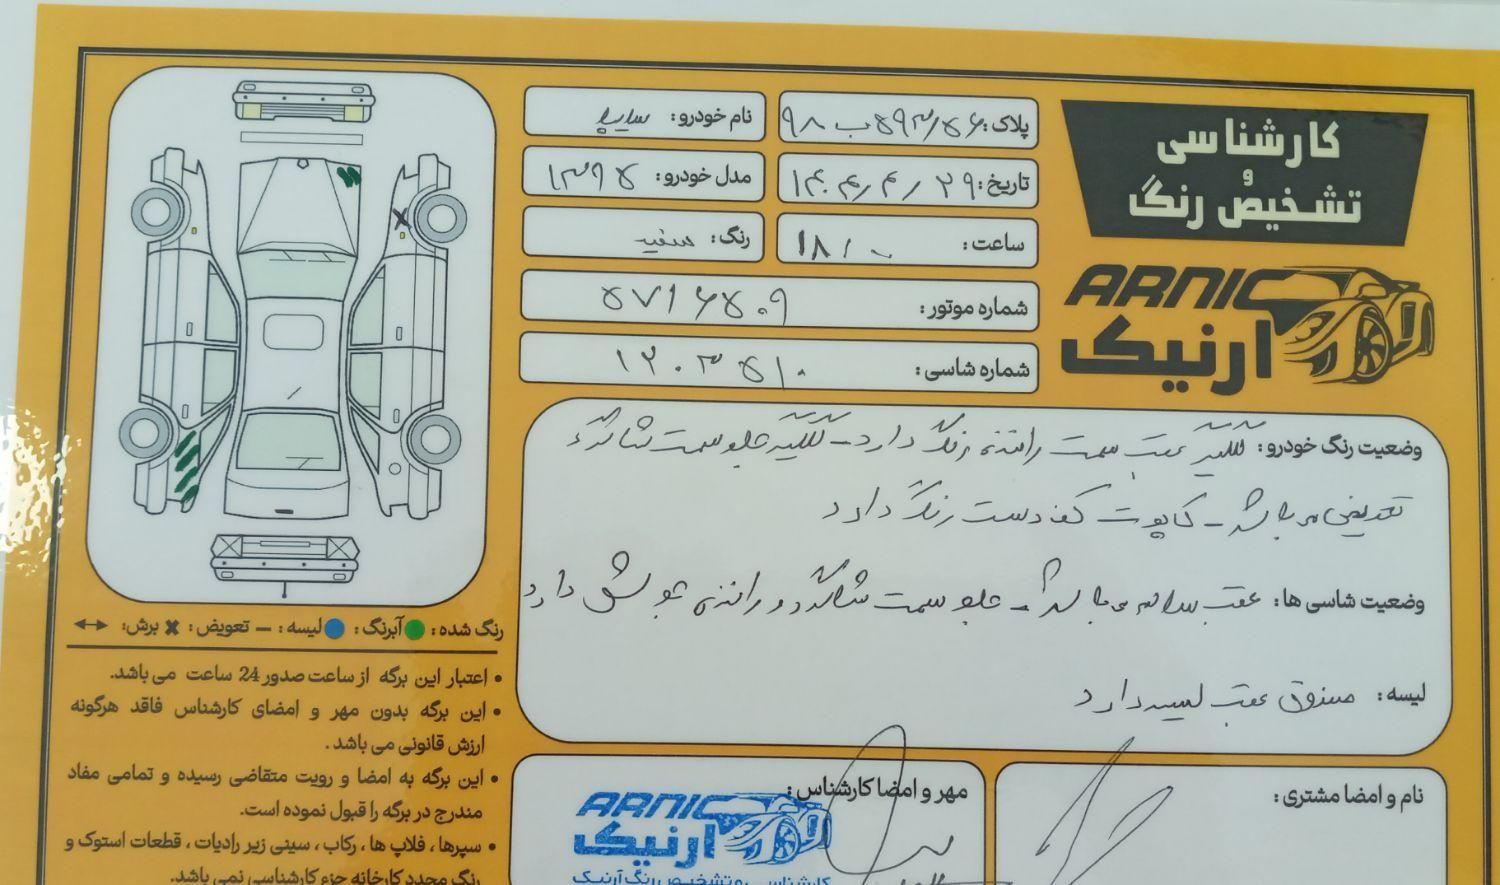 کارشناسی
و
تشخیص رنگ
ARNIC
ارنیک
پلاک: ۹۸ ب ۵۹۳/۵۶
نام خودرو: سایپا
تاریخ: ۱۴۰۴/۴/۲۹
مدل خودرو: ۱۳۹۵
ساعت: ۱۸/۰۰
رنگ: سفید
شماره موتور: ۵۷۱۶۵۰۹
شماره شاسی: ۱۲۰۳۵۱۰
وضعیت رنگ خودرو: گلگیر عقب سمت راننده رنگ دارد - گلگیر جلو سمت شاگرد
تعویض می باشد - کاپوت کف دست رنگ دارد
وضعیت شاسی ها: عقب سالم می باشد - جلو سمت شاگرد و راننده جوش دارد
لیسه: صندوق عقب لیسه دارد
رنگ شده: آبرنگ: لیسه: – تعویض: × برش: ↔
• اعتبار این برگه از ساعت صدور 24 ساعت می باشد.
• این برگه بدون مهر و امضای کارشناس فاقد هرگونه
ارزش قانونی می باشد.
• این برگه به امضا و رویت متقاضی رسیده و تمامی مفاد
مندرج در برگه را قبول نموده است.
• سپرها، فلاپ ها، رکاب، سینی زیر رادیات، قطعات استوک و
رنگ مجدد کارخانه جزء کارشناسی نمی باشد.
مهر و امضا کارشناس:
ARNIC
ارنیک
کارشناسی و تشخیص رنگ آرنیک
نام و امضا مشتری: